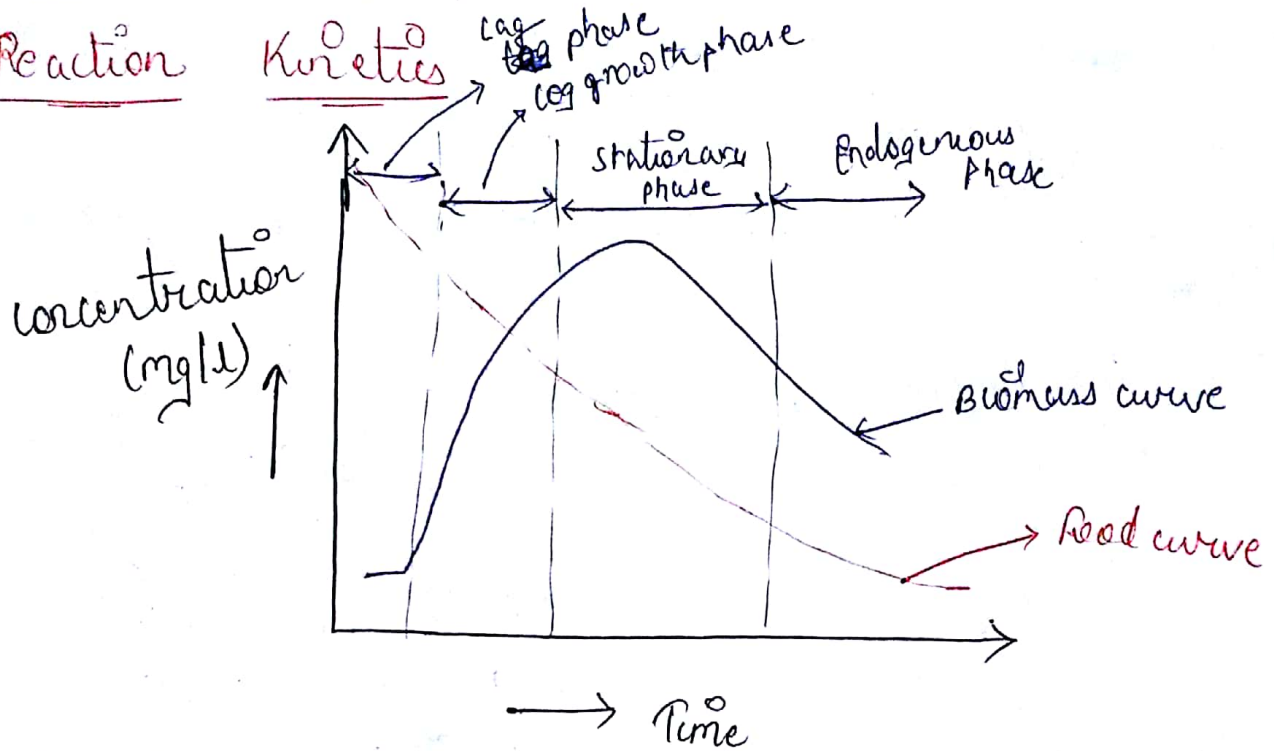 Reaction Kinetics
Lag phase
Log growth phase
Stationary phase
Endogenious Phase
concentration
(mg/l)
Biomass curve
Food curve
Time